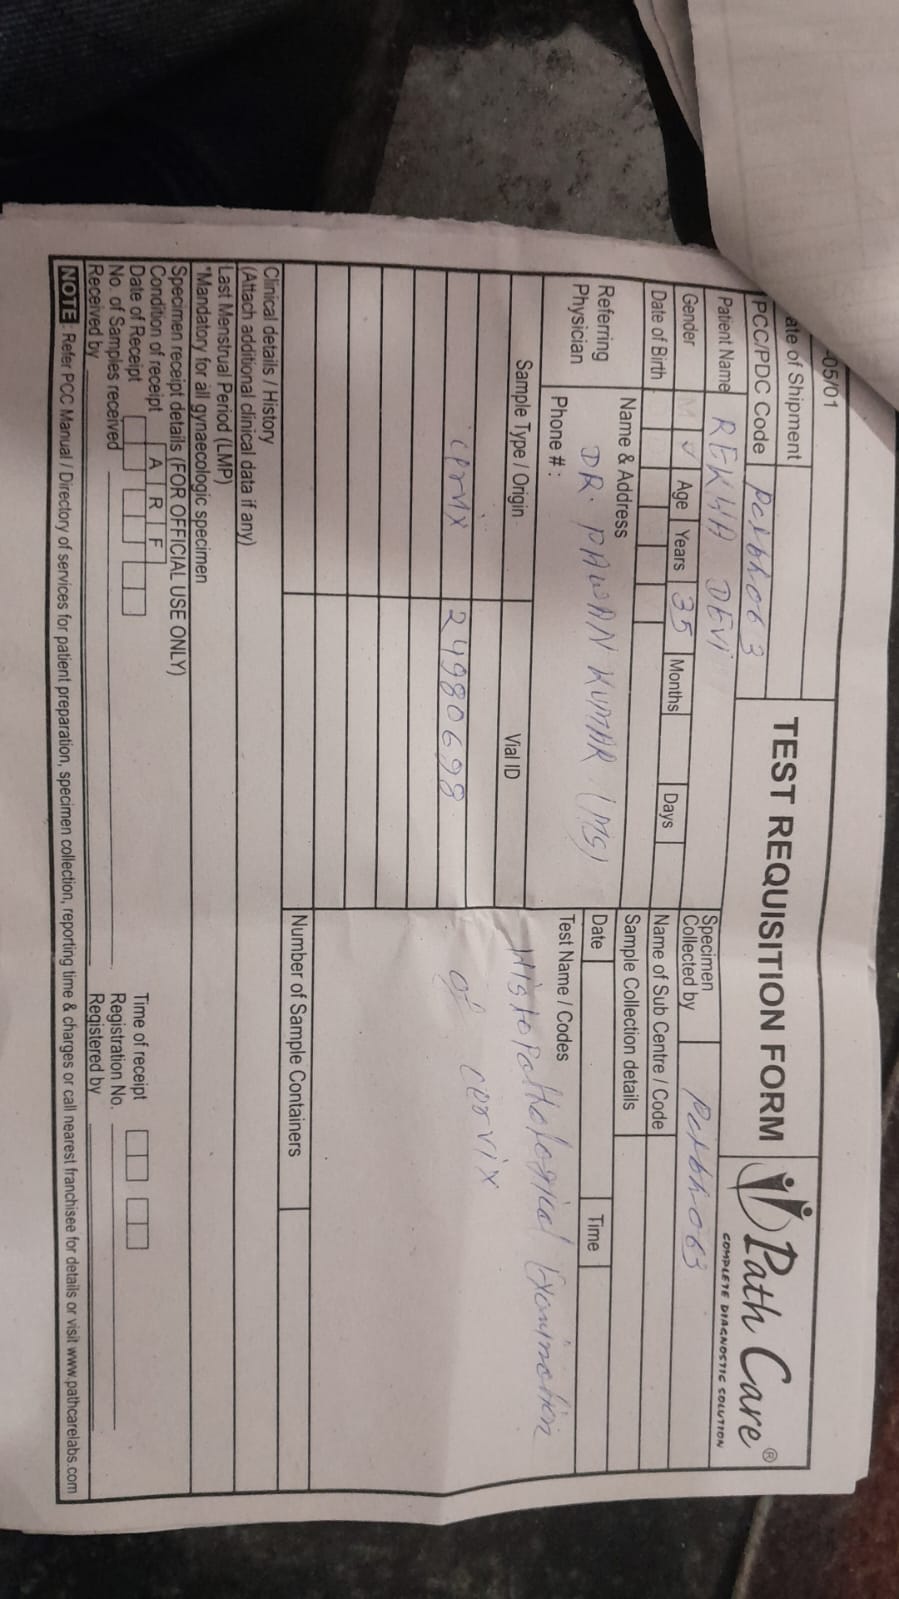 -05/01
ate of Shipment
PCC/PDC Code Pcxbh063
TEST REQUISITION FORM
Path Care®
COMPLETE DIAGNOSTIC SOLUTION
Patient Name REKHA DEVI
Specimen Collected by Pcxbh063
Gender M ✓ Age Years 35 Months Days
Name of Sub Centre / Code
Date of Birth
Sample Collection details
Referring Physician
Name & Address
DR. PAWAN KUMAR (MS)
Phone # :
Date Time
Sample Type / Origin Vial ID Test Name / Codes
Histopathological Examination
of cervix
cervix 24980698
Number of Sample Containers
Clinical details / History
(Attach additional clinical data if any)
Last Menstrual Period (LMP)
*Mandatory for all gynaecologic specimen
Specimen receipt details (FOR OFFICIAL USE ONLY)
Condition of receipt A R F
Date of Receipt Time of receipt
No. of Samples received Registration No.
Received by Registered by
NOTE : Refer PCC Manual / Directory of services for patient preparation, specimen collection, reporting time & charges or call nearest franchisee for details or visit www.pathcarelabs.com